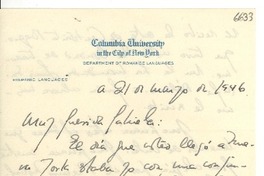 6633
Columbia University
in the City of New York
DEPARTMENT OF ROMANCE LANGUAGES
ROMANCE LANGUAGES
a 21 de marzo de 1946
Muy querida Gabriela:
El día que usted llegó a Nueva
York estaba yo con una